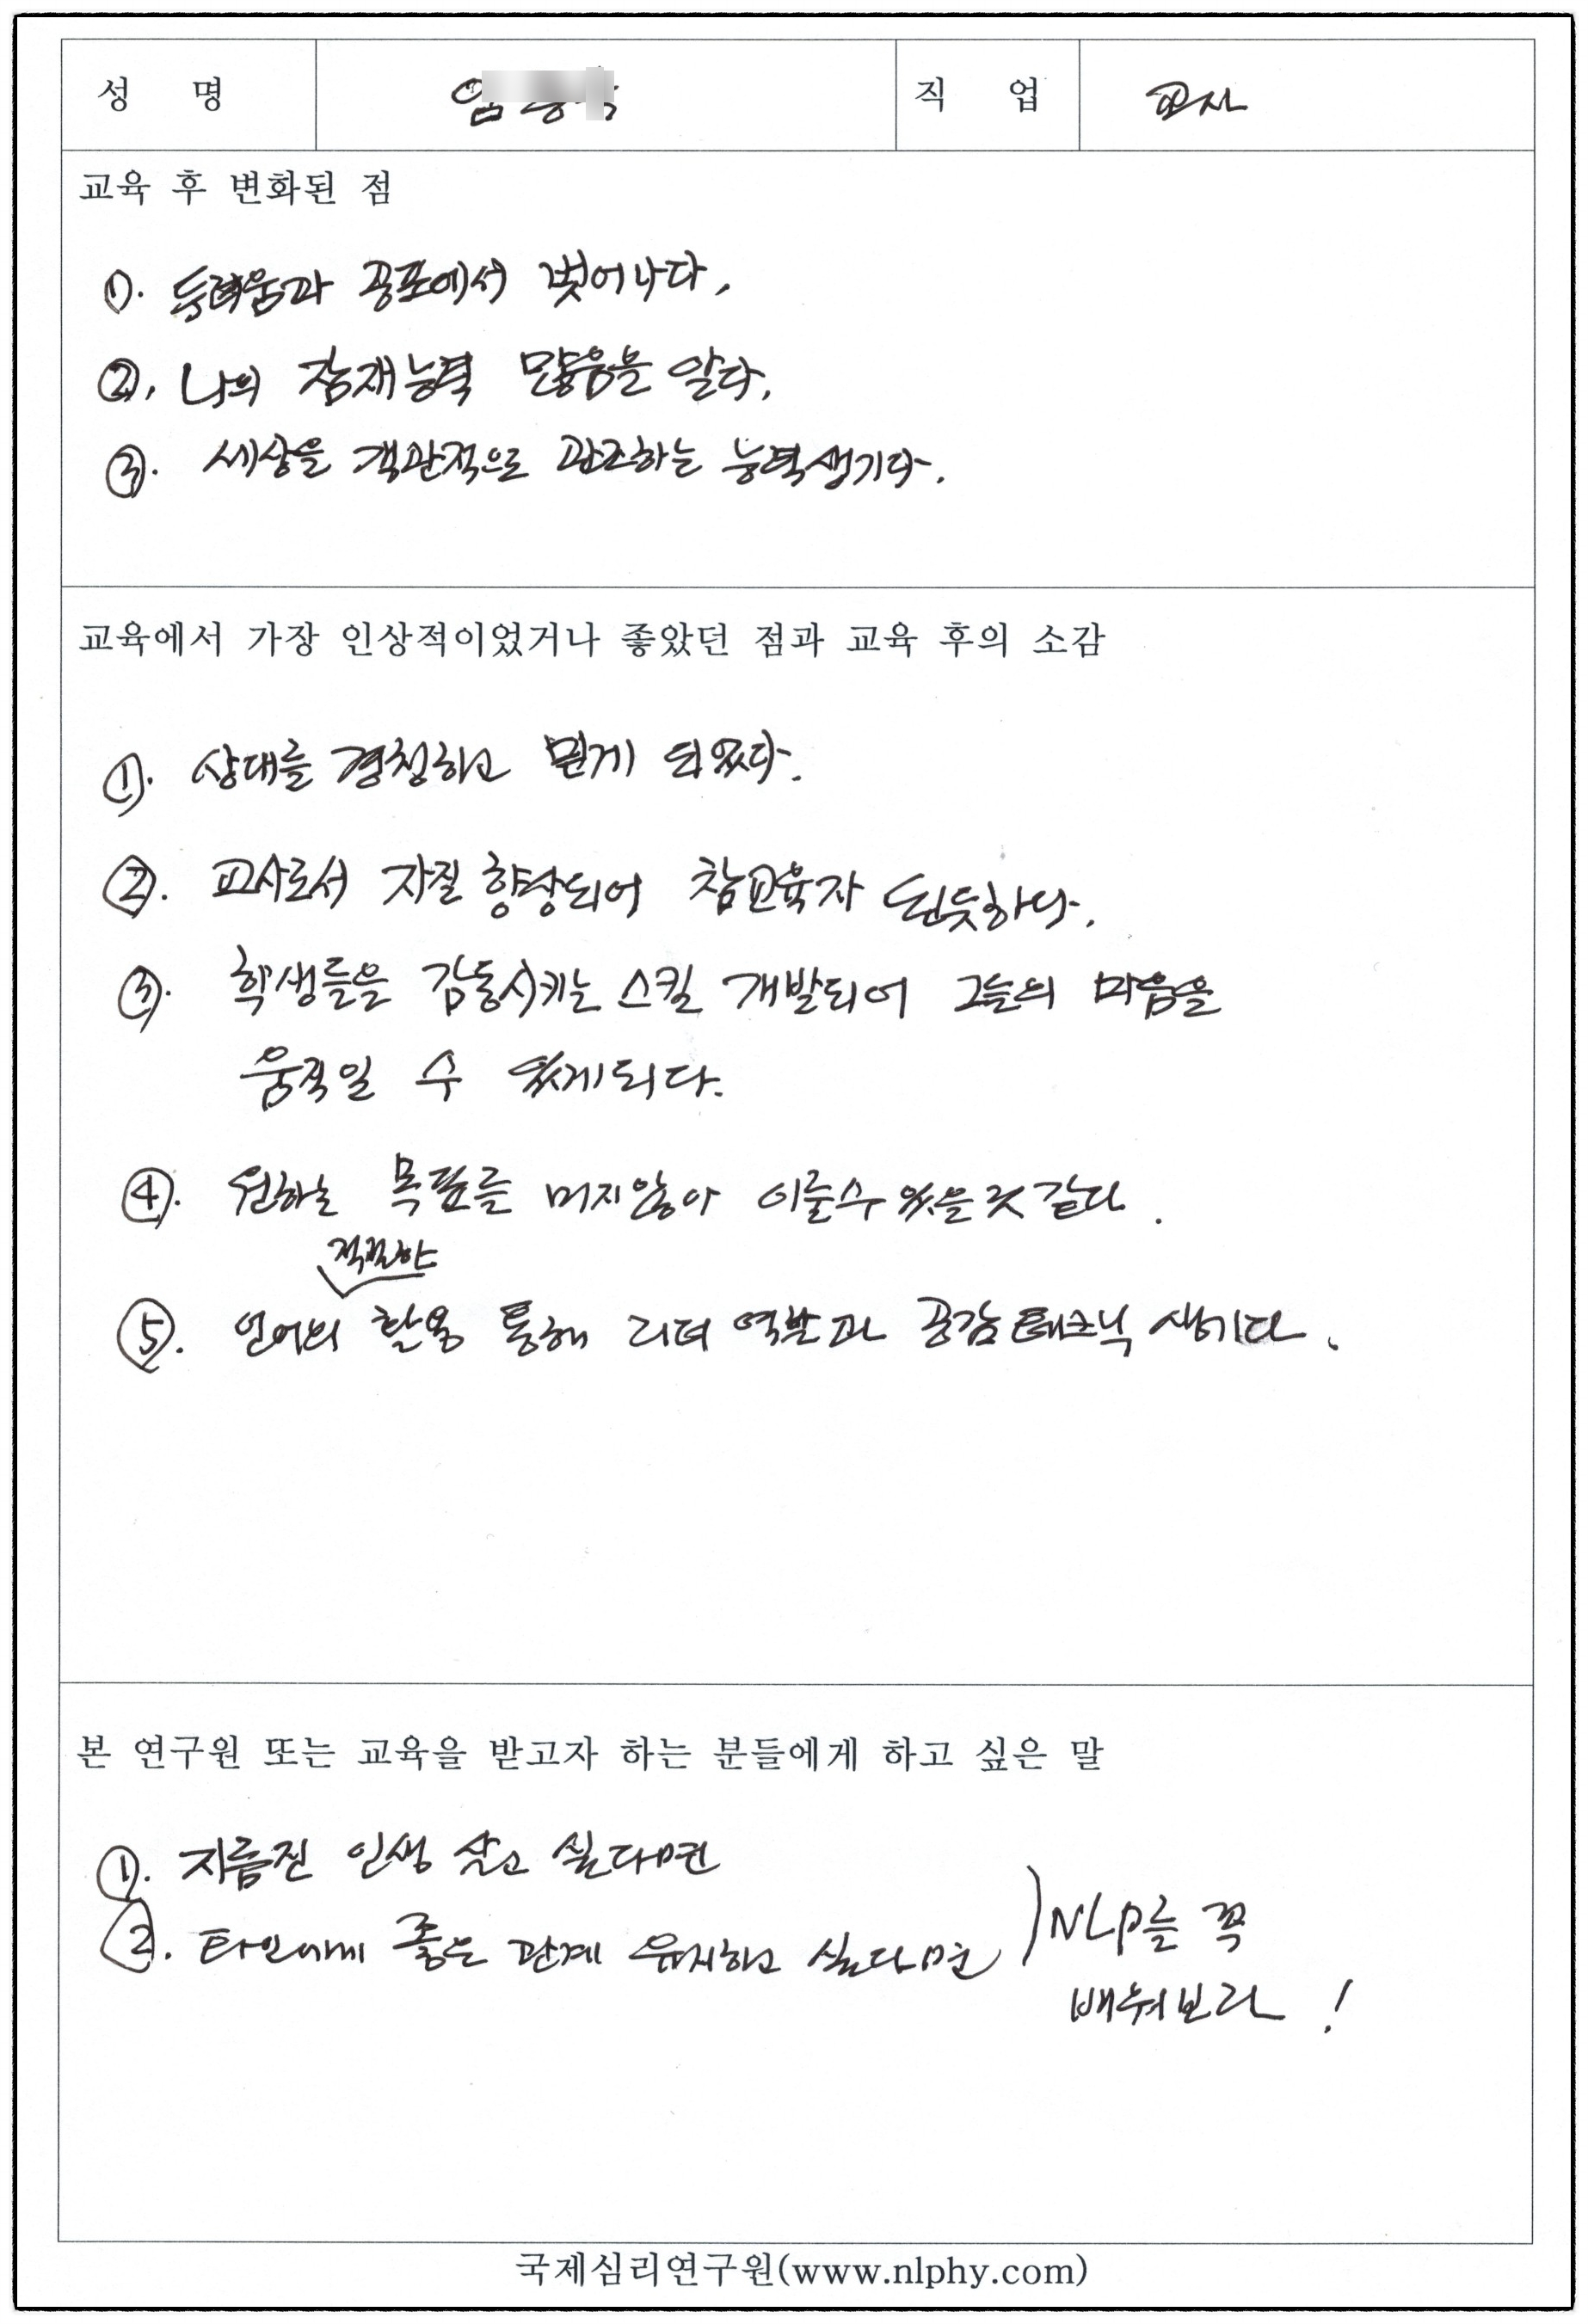 성 명 직 업 교사
교육 후 변화된 점
①. 두려움과 공포에서 벗어나다.
②. 나의 잠재능력 많음을 알다.
③. 세상을 객관적으로 관조하는 능력생기다.
교육에서 가장 인상적이었거나 좋았던 점과 교육 후의 소감
①. 상대를 경청하고 믿게 되었다.
②. 교사로서 자질 향상되어 참교육자 된듯하다.
③. 학생들을 감동시키는 스킬 개발되어 그들의 마음을
움직일 수 있게되다.
④. 원하는 목표를 머지않아 이룰수 있을것 같다.
적절한
⑤. 언어의 활용 통해 리더 역할과 공감 테크닉 생기다.
본 연구원 또는 교육을 받고자 하는 분들에게 하고 싶은 말
①. 기름진 인생 살고 싶다면
②. 타인에게 좋은 관계 유지하고 싶다면 ) NLP를 꼭
배워보라 !
국제심리연구원(www.nlphy.com)